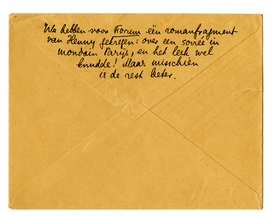 We hebben voor Forum één romanfragment
van Henny gekregen: over een soirée in
mondain Parijs, en het leek wel
knudde! Maar misschien
is de rest beter.